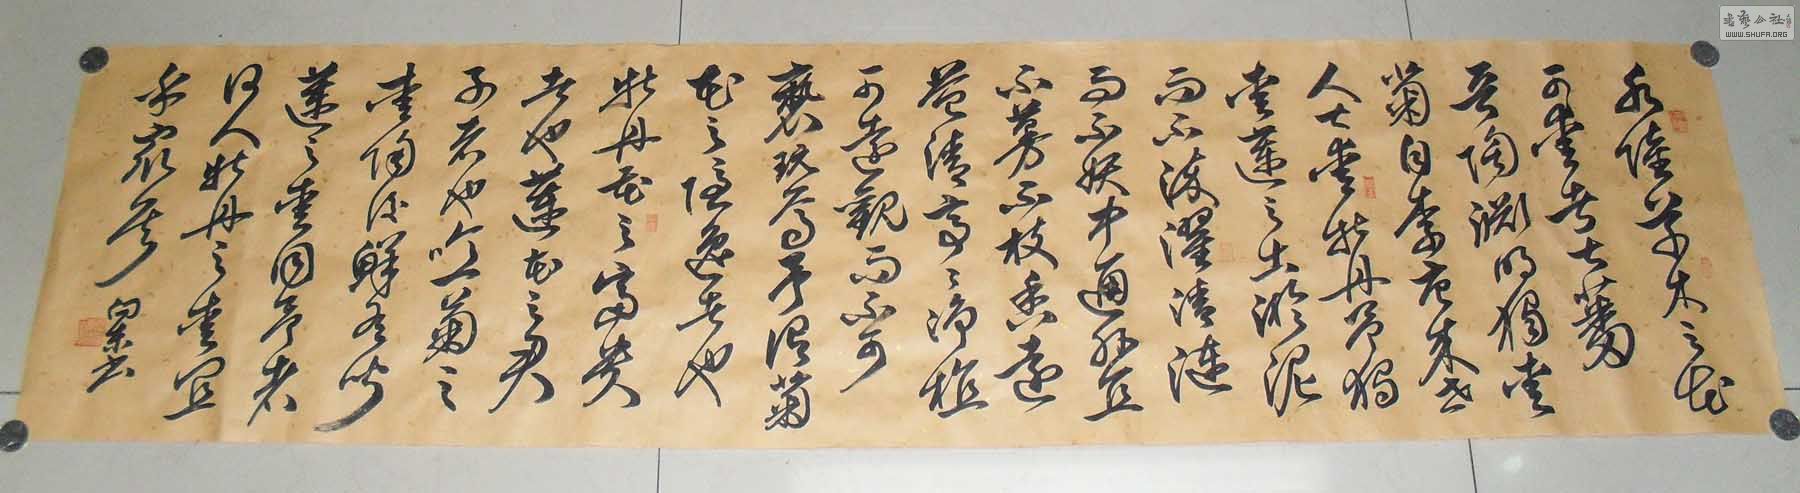 水陸草木之花
可愛者甚蕃
晉陶淵明獨愛
菊自李唐來世
人甚愛牡丹予獨
愛蓮之出淤泥
而不染濯清漣
而不妖中通外直
不蔓不枝香遠
益清亭〻淨植
可遠觀而不可
褻玩焉予謂菊
花之隱逸者也
牡丹花之富貴
者也蓮花之君
子者也噫菊之
愛陶後鮮有聞
蓮之愛同予者
何人牡丹之愛宜
乎眾矣
书艺公社
WWW.SHUFA.ORG